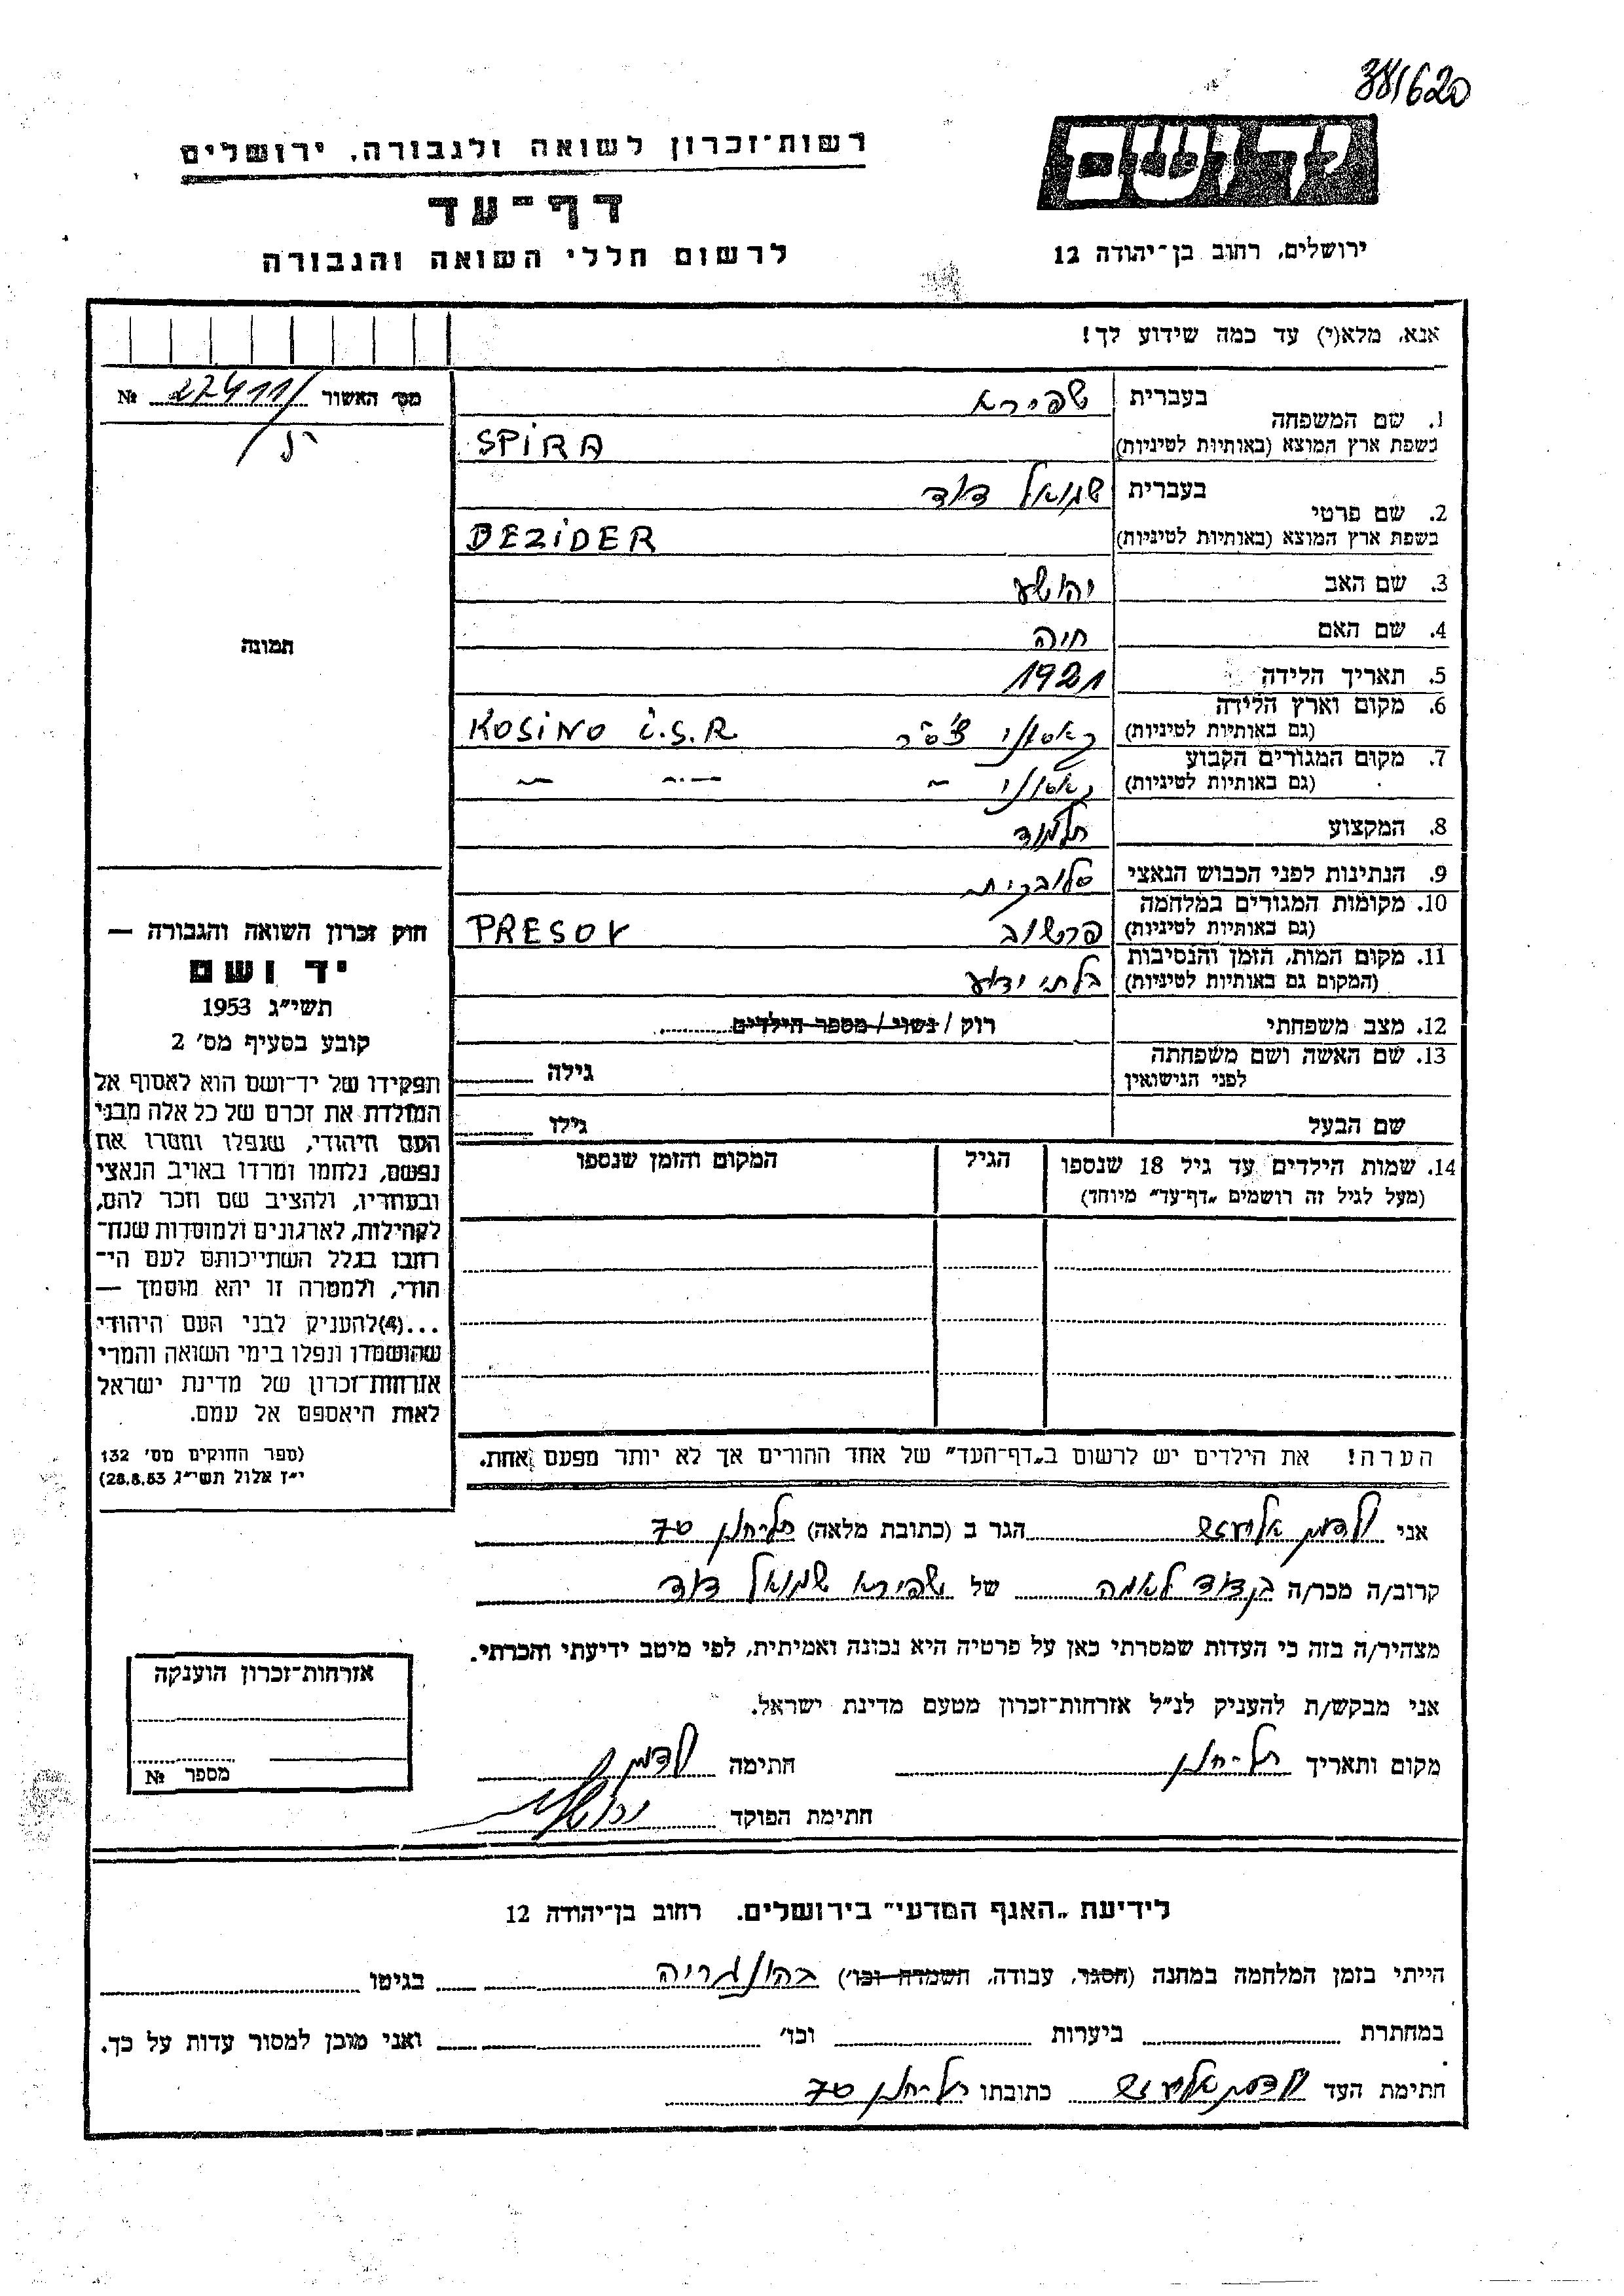 381620
יד ושם
רשות־זכרון לשואה ולגבורה, ירושלים
דף־עד
לרשום חללי השואה והגבורה
ירושלים, רחוב בן־יהודה 12
אנא, מלא(י) עד כמה שידוע לך!
מס׳ האשור 27411/ №
1. שם המשפחה בעברית שפירא
בשפת ארץ המוצא (באותיות לטיניות) SPiRA
2. שם פרטי בעברית שמואל דוד
בשפת ארץ המוצא (באותיות לטיניות) DEZiDER
3. שם האב יהושע
4. שם האם חיה
5. תאריך הלידה 1921
6. מקום וארץ הלידה
(גם באותיות לטיניות) צ׳ס״ר KOSiNO Č.S.R.
7. מקום המגורים הקבוע
(גם באותיות לטיניות) — — —
8. המקצוע תלמיד
9. הנתינות לפני הכבוש הנאצי סלובקית
10. מקומות המגורים במלחמה
(גם באותיות לטיניות) פרשוב PRESOV
11. מקום המות, הזמן והנסיבות
(המקום גם באותיות לטיניות) בלתי ידוע
12. מצב משפחתי רוק / נשוי / מספר הילדים
13. שם האשה ושם משפחתה
לפני הנישואין גילה
שם הבעל גילו
14. שמות הילדים עד גיל 18 שנספו הגיל המקום והזמן שנספו
(מעל לגיל זה רושמים „דף־עד״ מיוחד)
תמונה
חוק זכרון השואה והגבורה —
יד ושם
תשי״ג 1953
קובע בסעיף מס׳ 2
תפקידו של יד־ושם הוא לאסוף אל
המולדת את זכרם של כל אלה מבני
העם היהודי, שנפלו ומסרו את
נפשם, נלחמו ומרדו באויב הנאצי
ובעוזריו, ולהציב שם וזכר להם,
לקהילות, לארגונים ולמוסדות שנח־
רבו בגלל השתייכותם לעם הי־
הודי, ולמטרה זו יהא מוסמך —
...(4) להעניק לבני העם היהודי
שהושמדו ונפלו בימי השואה והמרי
אזרחות־זכרון של מדינת ישראל
לאות היאספם אל עמם.
(ספר החוקים מס׳ 132
י״ז אלול תשי״ג 28.8.53)
הערה! את הילדים יש לרשום ב„דף־העד״ של אחד ההורים אך לא יותר מפעם אחת.
אני הגר ב (כתובת מלאה) 70
קרוב/ה מכר/ה בן דוד לאמה של שפירא שמואל דוד
מצהיר/ה בזה כי העדות שמסרתי כאן על פרטיה היא נכונה ואמיתית, לפי מיטב ידיעתי והכרתי.
אני מבקש/ת להעניק לנ״ל אזרחות־זכרון מטעם מדינת ישראל.
מקום ותאריך חתימה
חתימת הפוקד
אזרחות־זכרון הוענקה
מספר №
לידיעת „האגף המדעי״ בירושלים. רחוב בן־יהודה 12
הייתי בזמן המלחמה במחנה (הסגר, עבודה, השמדה וכו׳) בהונגריה בגיטו
במחתרת ביערות וכו׳ ואני מוכן למסור עדות על כך.
חתימת העד כתובתו 70